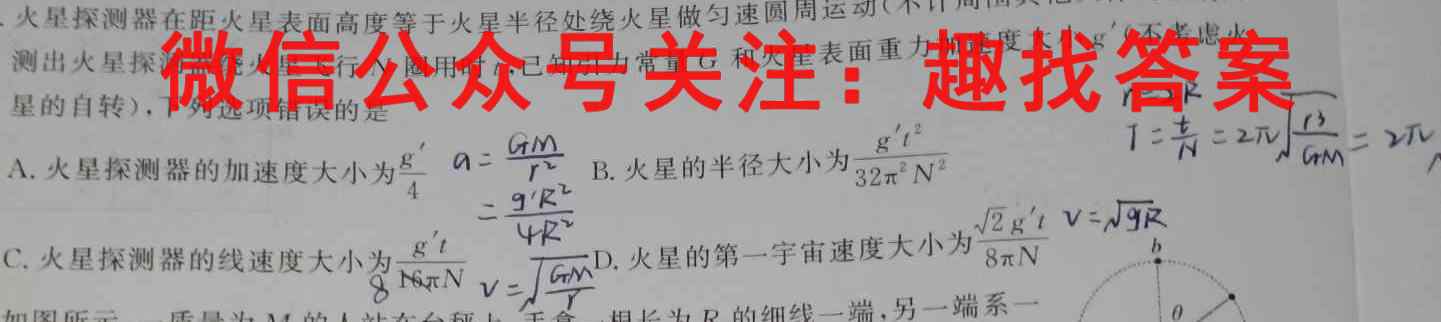 火星探测器在距火星表面高度等于火星半径处绕火星做匀速圆周运动(不计周围其他
测出火星探测器绕火星飞行N圈用时t,已知引力常量G和火星表面重力加速度大小g′(不考虑火
微信公众号关注：趣找答案
星的自转),下列选项错误的是
r=2R
T=t/N=2π√(r³/GM)=2π
A.火星探测器的加速度大小为g′/4 a=GM/r² B.火星的半径大小为g′t²/32π²N²
=g′R²/4R²
C.火星探测器的线速度大小为g′t/16πN v=√(GM/r) D.火星的第一宇宙速度大小为√2g′t/8πN v=√gR
8
b
θ
如图所示,一质量为M的人站在台秤上,手拿一根长为R的细线一端,另一端系一